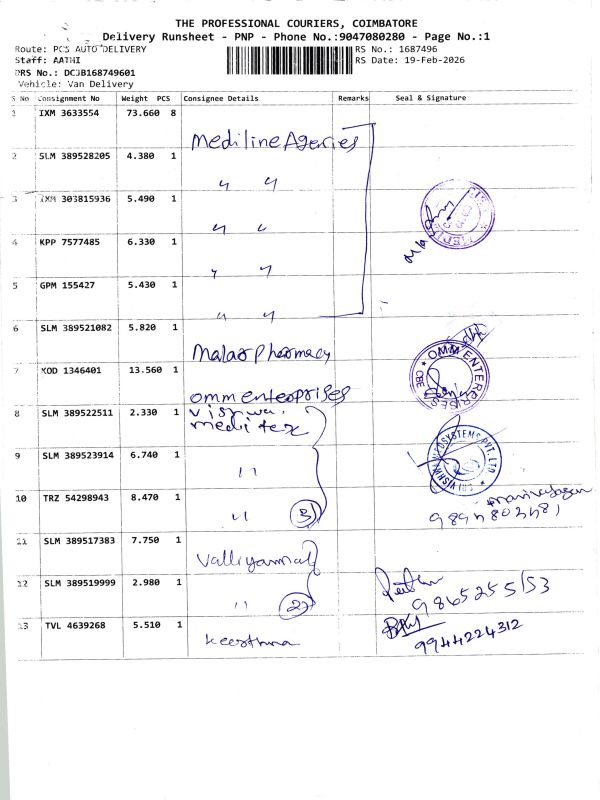 THE PROFESSIONAL COURIERS, COIMBATORE
Delivery Runsheet - PNP - Phone No.:9047080280 - Page No.:1
Route: PCS AUTO DELIVERY
RS No.: 1687496
Staff: AATHI
RS Date: 19-Feb-2026
DRS No.: DCJB168749601
Vehicle: Van Delivery
S No Consignment No Weight PCS Consignee Details Remarks Seal & Signature
1 IXM 3633554 73.660 8
Mediline Agencies
2 SLM 389528205 4.380 1
" "
3 IXM 303815936 5.490 1
" "
4 KPP 7577485 6.330 1
" "
5 GPM 155427 5.430 1
" "
6 SLM 389521082 5.820 1
Malar Pharmacy
7 KOD 1346401 13.560 1
OMM ENTERPRISES
CBE
omm enterprises
8 SLM 389522511 2.330 1
Vishwa
meditex
9 SLM 389523914 6.740 1
"
10 TRZ 54298943 8.470 1
" 3
11 SLM 389517383 7.750 1
Valliyammal
12 SLM 389519999 2.980 1
" 2
9865255153
13 TVL 4639268 5.510 1
Keerthna
9944224312